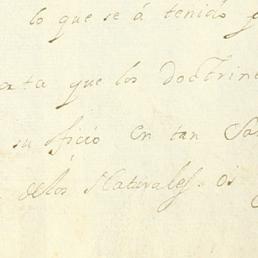 lo que se á tenido
que los Doctrine
su ficio en tan
de los Naturales. os